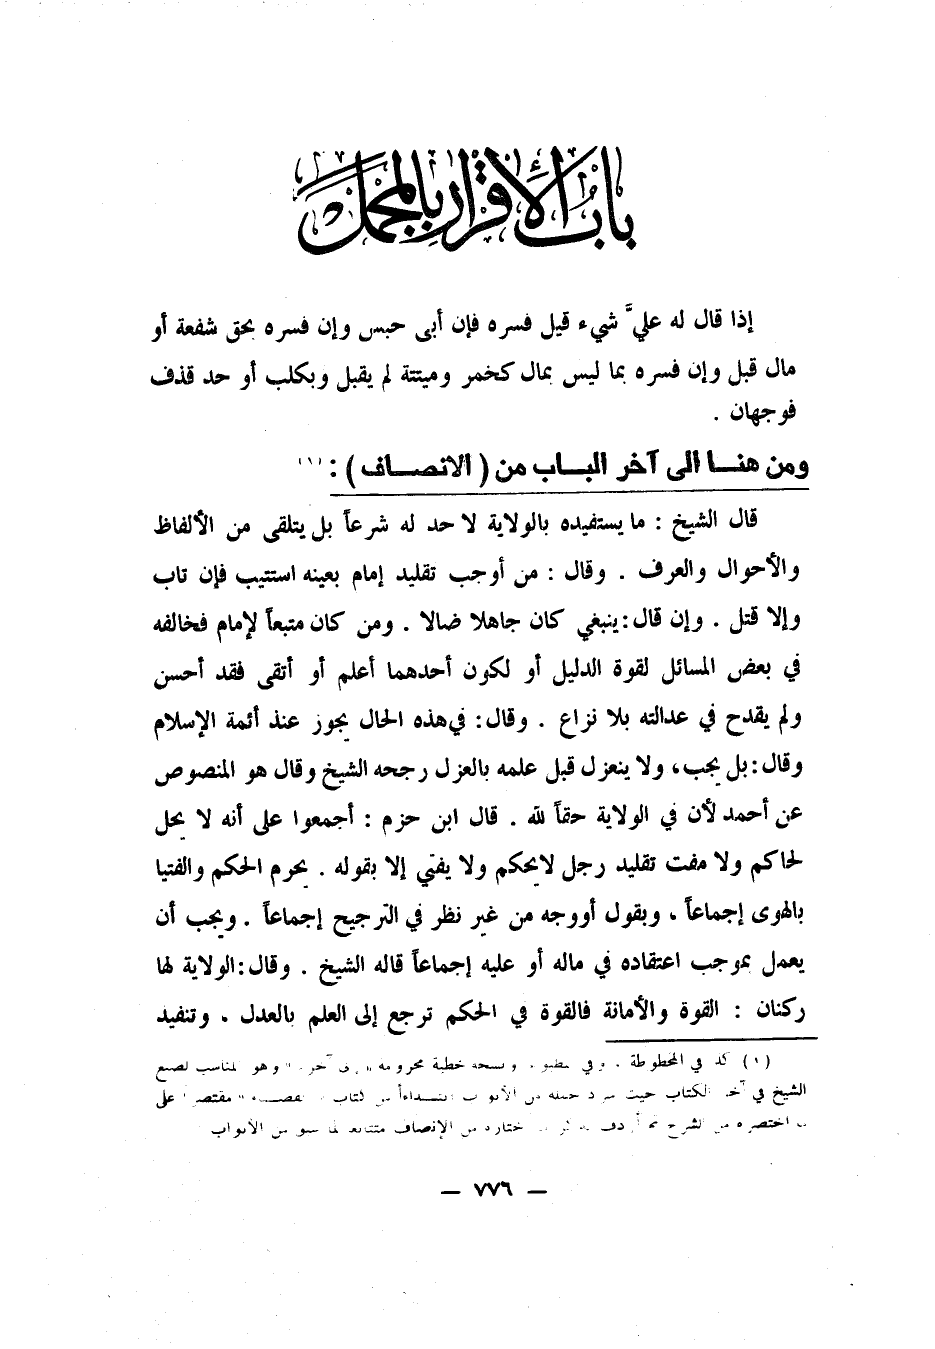 باب الإقرار بالمجمل
إذا قال له عليَّ شيء قيل فسره فإن أبى حبس وإن فسره بحق شفعة أو
مال قبل وإن فسره بما ليس بمال كخمر وميتتة لم يقبل وبكلب أو حد قذف
فوجهان .
ومن هنا الى آخر الباب من ( الانصاف ) : (١)
قال الشيخ : ما يستفيده بالولاية لا حد له شرعاً بل يتلقى من الألفاظ
والأحوال والعرف . وقال : من أوجب تقليد إمام بعينه استتيب فإن تاب
وإلا قتل . وإن قال : ينبغي كان جاهلا ضالا . ومن كان متبعاً لإمام فخالفه
في بعض المسائل لقوة الدليل أو لكون أحدهما أعلم أو أتقى فقد أحسن
ولم يقدح في عدالته بلا نزاع . وقال : في هذه الحال يجوز عند أئمة الإسلام
وقال : بل يجب ، ولا ينعزل قبل علمه بالعزل رجحه الشيخ وقال هو المنصوص
عن أحمد لأن في الولاية حقاً لله . قال ابن حزم : أجمعوا على أنه لا يحل
لحاكم ولا مفت تقليد رجل لا يحكم ولا يفتي إلا بقوله . يحرم الحكم والفتيا
بالهوى إجماعاً ، وبقول أو وجه من غير نظر في الترجيح إجماعاً . ويجب أن
يعمل بموجب اعتقاده في ماله أو عليه إجماعاً قاله الشيخ . وقال : الولاية لها
ركنان : القوة والأمانة فالقوة في الحكم ترجع إلى العلم بالعدل ، وتنفيد
(١) في المخطوطة . وفي خطية وهو المناسب لصنع
الشيخ في الكتاب حيث على
اختصره الشرح من الإنصاف الأبواب
— ٧٧٦ —